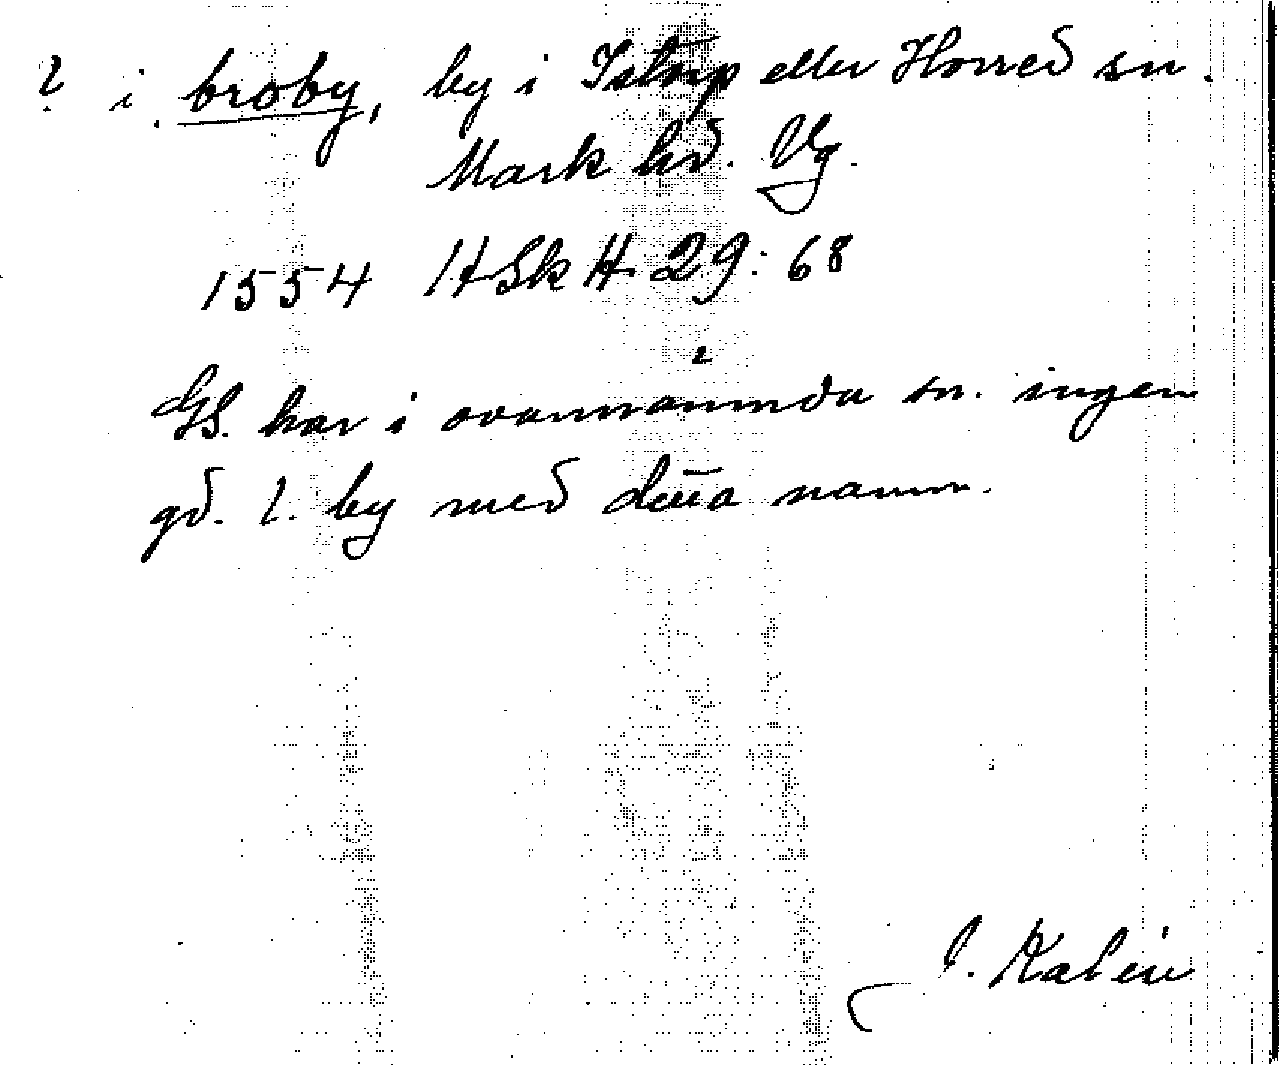 ? i broby, by i Istorp eller Horred sn.
Mark hd. Vg.
1554 HSkH 29:68
GS. har i ovannämnda sn. ingen
gd. l. by med det̄a namn.
J. Kalén